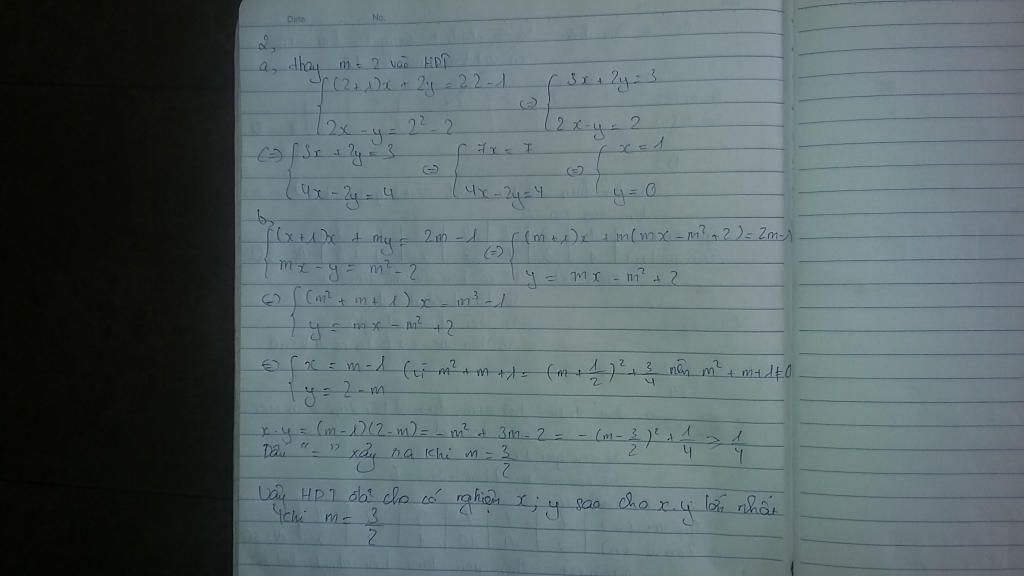 Date No.
2,
a, thay m = 2 vào HPT
{ (2+1)x + 2y = 2.2 - 1 (=) { 3x + 2y = 3
{ 2x - y = 2² - 2 { 2x - y = 2
(=) { 3x + 2y = 3 (=) { 7x = 7 (=) { x = 1
{ 4x - 2y = 4 { 4x - 2y = 4 { y = 0
b,
{ (x+1)x + my = 2m - 1 (=) { (m+1)x + m(mx - m² + 2) = 2m-1
{ mx - y = m² - 2 { y = mx - m² + 2
(=) { (m² + m + 1) x = m³ - 1
{ y = mx - m² + 2
(=) { x = m - 1 (vì m² + m + 1 = (m + 1/2)² + 3/4 nên m² + m + 1 ≠ 0
{ y = 2 - m
x.y = (m-1)(2-m) = -m² + 3m - 2 = -(m - 3/2)² + 1/4 ≥ 1/4
Dấu "=" xảy ra khi m = 3/2
Vậy HPT đã cho có nghiệm x; y sao cho x.y lớn nhất
khi m = 3/2